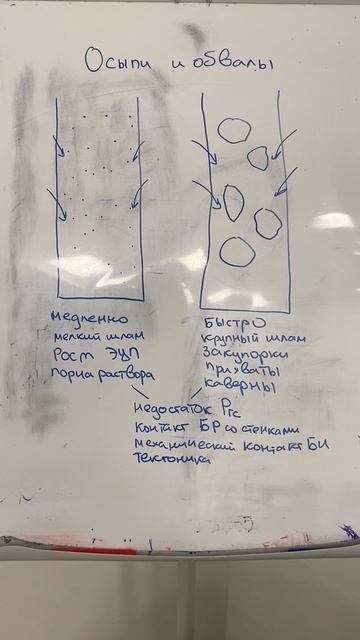 Осыпи и обвалы
медленно
мелкий шлам
Рост ЭЦП
порча раствора
быстро
крупный шлам
закупорки
прихваты
каверны
недостаток Pгс
контакт БР со стенками
механический контакт БИ
тектоника